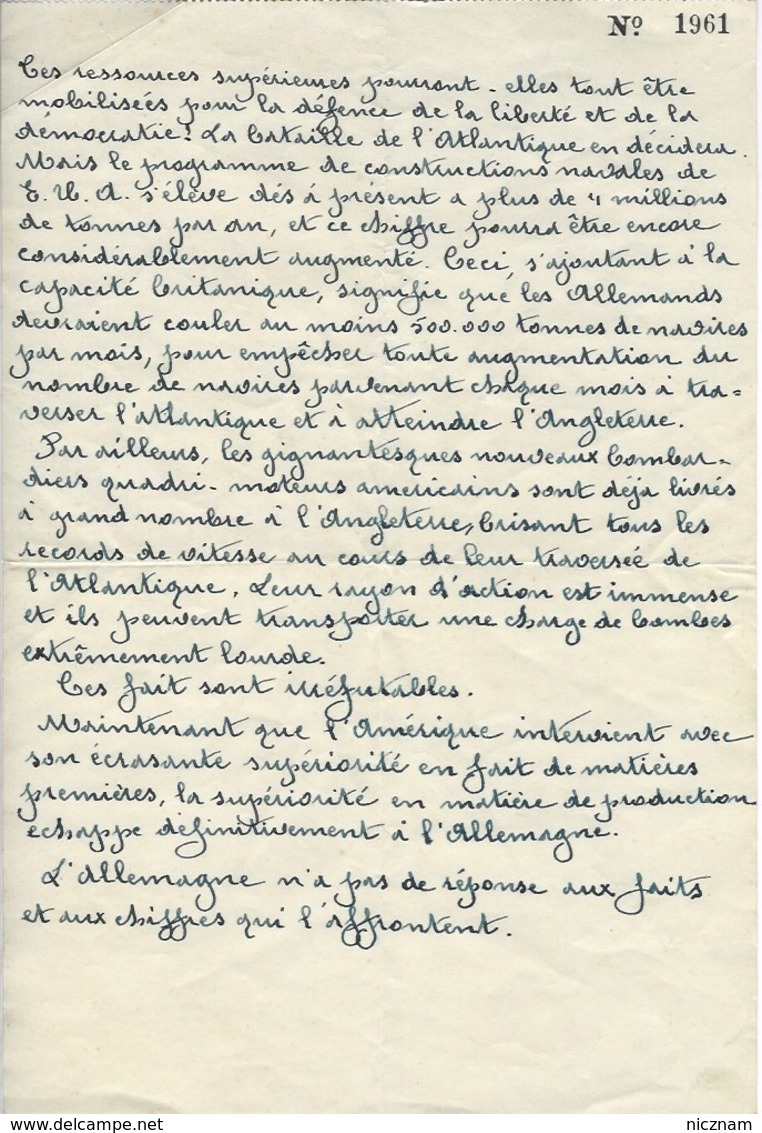 Nº 1961
Ces ressources supérieures pourront-elles tout être
mobiliseés pour la défence de la liberté et de la
démocratie? La bataille de l'Atlantique en décidera.
Mais le programme de constructions navales de
E. U. A. s'élève dés á présent a plus de 4 millions
de tonnes par an, et ce chiffre pourra être encore
considérablement augmenté. Ceci, s'ajoutant à la
capacité britanique, signifie que les Allemands
devraient couler au moins 500.000 tonnes de navires
par mois, pour empêcher toute augmentation du
nombre de navires parvenant chaque mois à tra-
verser l'atlantique et à atteindre l'Angleterre.
Par ailleurs, les gignantesques nouveaux bombar-
diers quadri-moteurs americains sont déja livrés
à grand nombre à l'Angleterre, brisant tous les
records de vitesse au cours de leur traverseé de
l'Atlantique. Leur rayon d'action est immense
et ils peuvent transporter une charge de bombes
extrêmement lourde.
Ces fait sont irréfutables.
Maintenant que l'Amérique intervient avec
son écrasante supériorité en fait de matières
premières, la supériorité en matière de production
echappe définitivement à l'Allemagne.
L'Allemagne n'a pas de réponse aux faits
et aux chiffres qui l'affrontent.
delcampe.net
nicznam